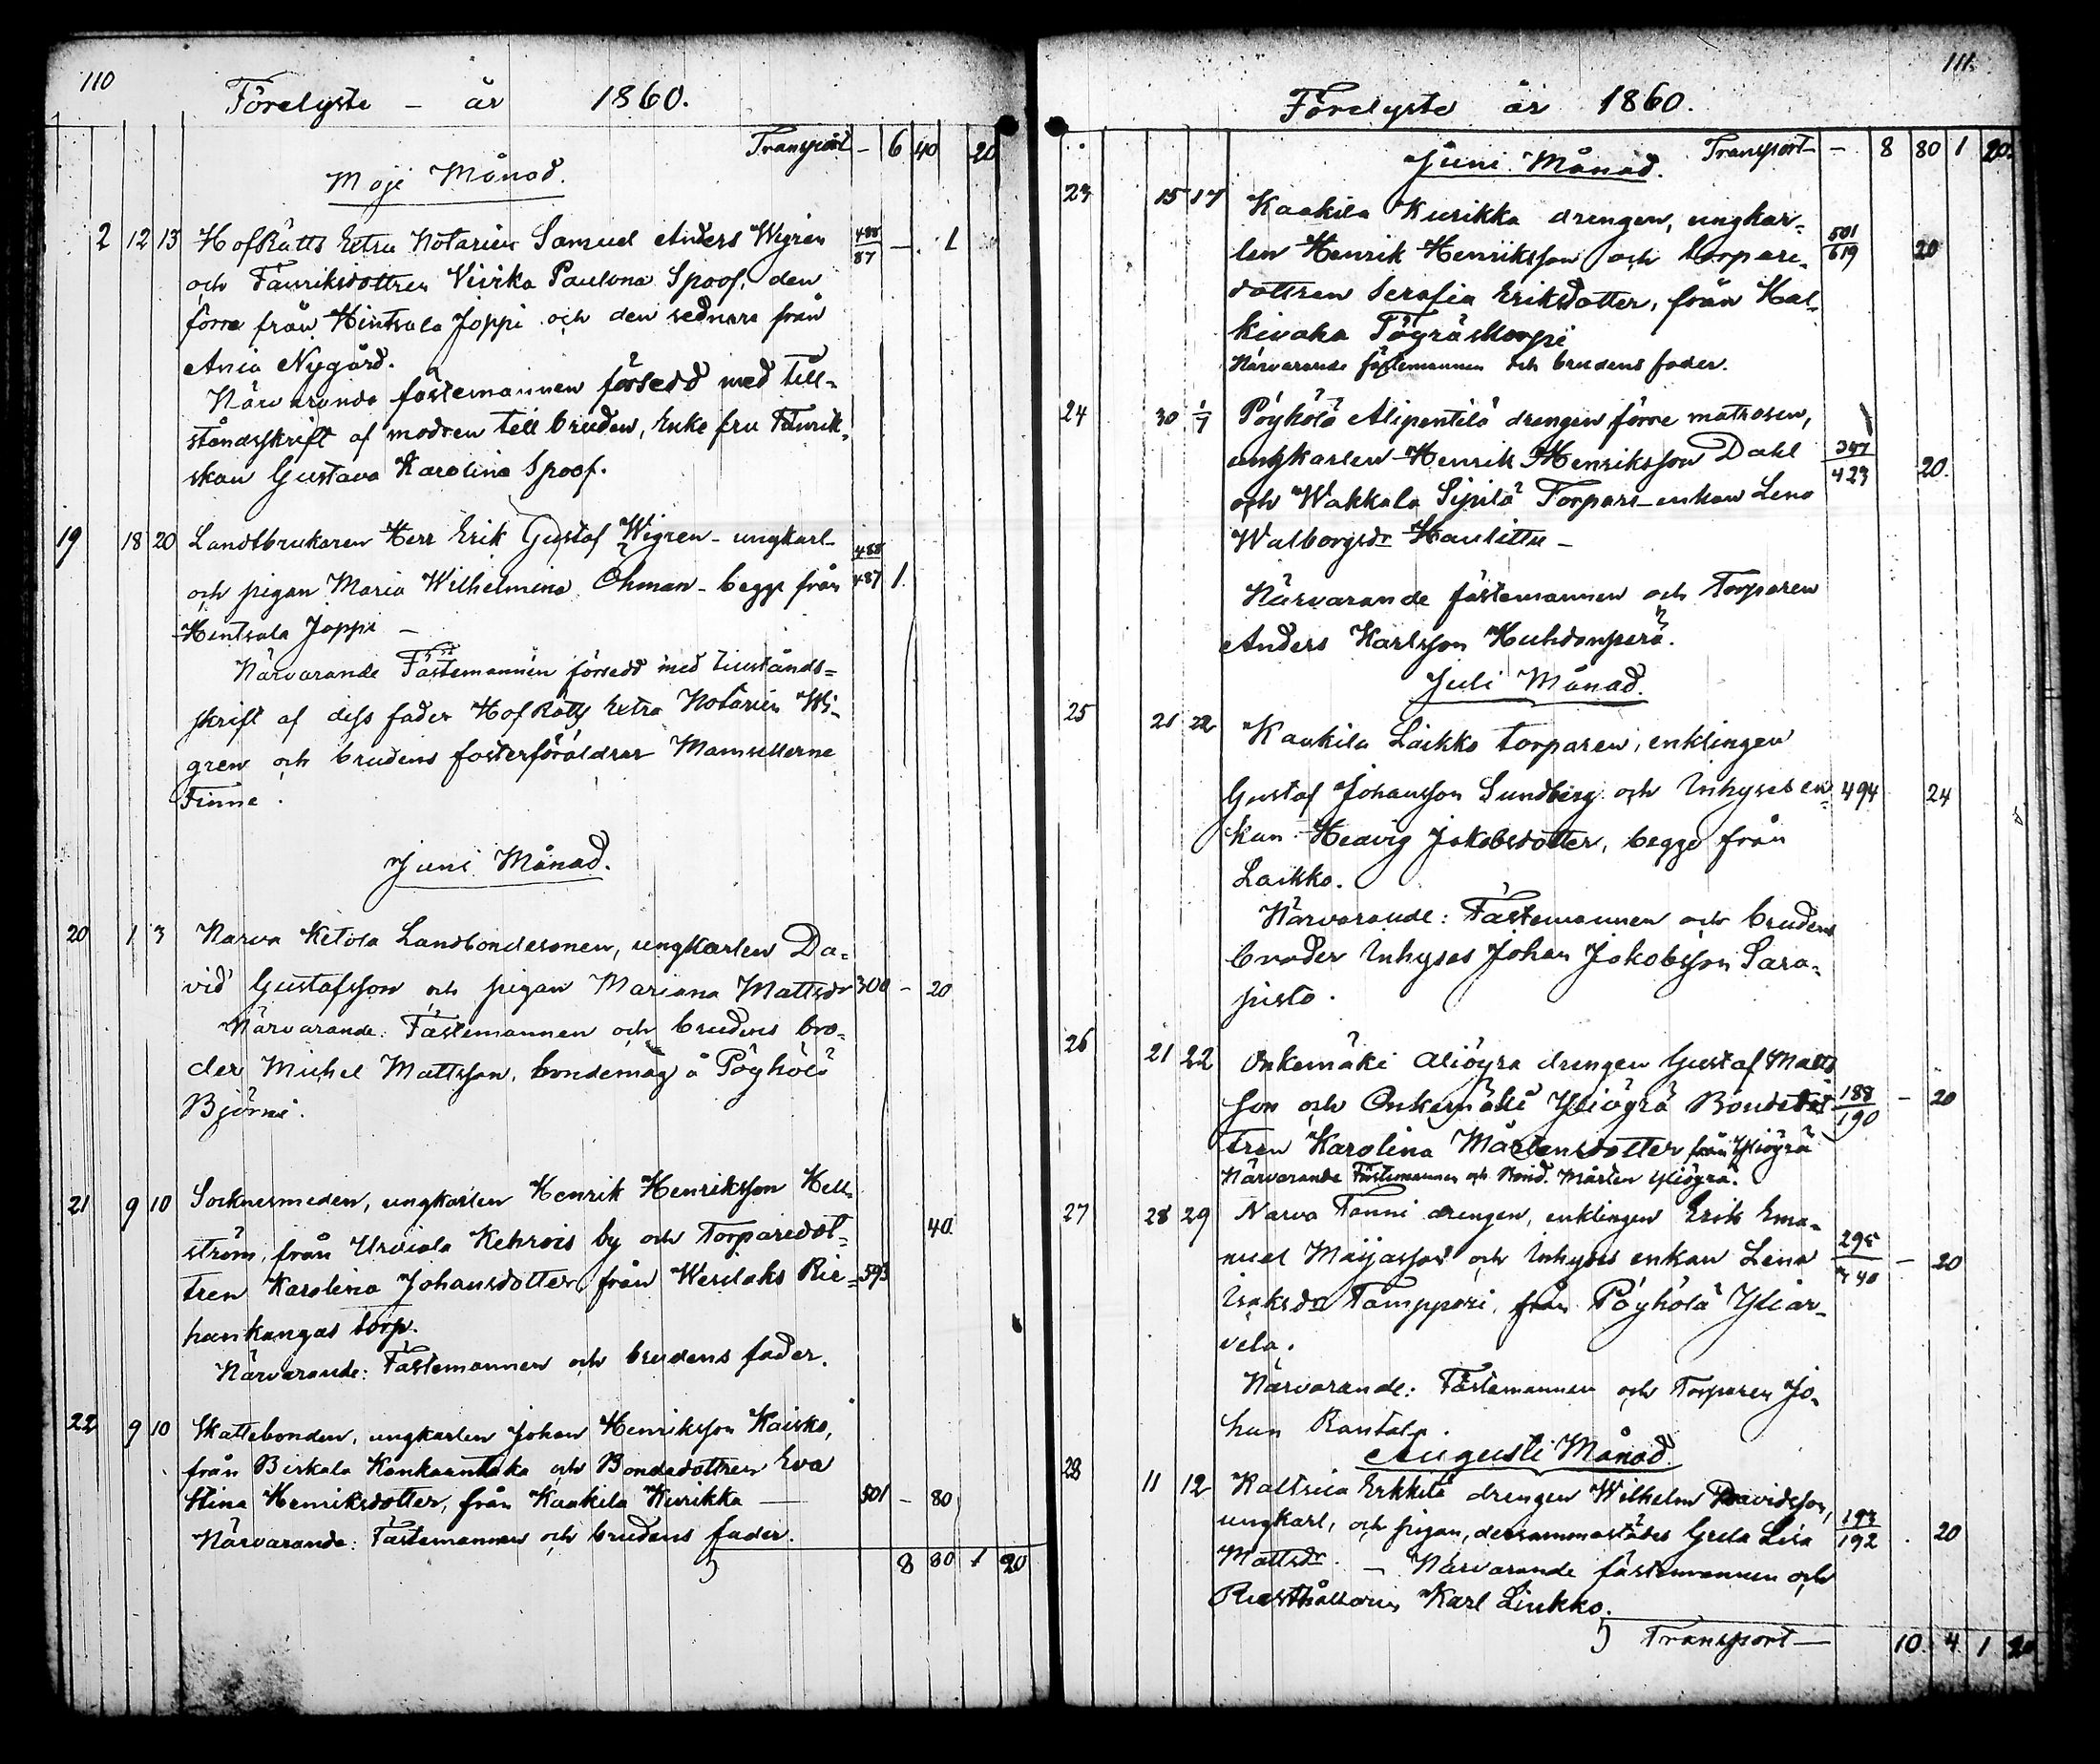 110
Förelyste - år 1860.
Transport - 6 40 20
Maji Månad.
2 12 13 HofRätts Extra Notarien Samuel Anders Wigren 488/87 - 1
och Fänriksdottren Vivika Paulona Spoof, den
förra från Hintsala Joppi och den sednare från
Ania Nygård.
Närvarande fästemannen försedd med till-
ståndsskrift af modren till bruden, Enke fru Fänrik-
skan Gustava Karolina Spoof.
19 18 20 Landtbrukaren Herr Erik Gustaf Wigren - ungkarl - 488/487 1.
och pigan Maria Wilhelmina Öhman - begge från
Hintsala Joppi -
Närvarande Fästemannen försedd med tillstånds=
skrift af dess fader HofRätts Extra Notarien Wi-
gren och brudens fosterföräldrar Mamsellerne
Finne.
Juni Månad.
20 1 3 Narva Ketola Landbondesonen, ungkarlen Da=
vid Gustafsson och pigan Mariana Mattsdr 300 - 20
Närvarande: Fästemannen och brudens bro-
der Michel Mattsson, bondemåg å Pöyhölä
Björni.
21 9 10 Socknesmeden, ungkarlen Henrik Henriksson Hell-
ström, från Urviala Kehrois by och Torparedot- 40.
tren Karolina Johansdotter från Wesilaks Rie- 593
hankangas torp.
Närvarande: Fästemannen och brudens fader.
22 9 10 Skattebonden, ungkarlen Johan Henriksson Kaisko,
från Birkala Kankaantaka och Bondedottren Eva
Stina Henriksdotter, från Kaakila Kurikka — 501 - 80
Närvarande: Fästemannen och brudens fader.
5 8 80 1 20
111.
Förelyste år 1860.
Juni Månad. Transport - 8 80 1 20.
23 15 17 Kaakila Kurikka drengen, ungkar-
len Henrik Henriksson och torpare- 501/619 20
dottren Serafia Eriksdotter, från Hal-
kivaha Töyräs torp
Närvarande fästemannen och brudens fader.
24 30 1/7 Pöyhölä Alipentilä drengen förre matrosen,
ungkarlen Henrik Henriksson Dahl 347/423 20.
och Wakkala Sipilä Torpare-enkan Lena
Walborgsdr Haulittu -
Närvarande fästemannen och Torparen
Anders Karlsson Huhdanperä.
Juli Månad.
25 21 22 Kaakila Laikko torparen, enklingen
Gustaf Johansson Sundberg och Inhyses en- 494 24
kan Hedvig Jakobsdotter, begge från
Laikko.
Närvarande: Fästemannen och brudens
broder Inhyses Johan Jakobsson Sara-
pisto.
26 21 22 Onkemäki Aliöyrä drengen Gustaf Matts
son och Onkemäki Yliöyrä Bondedot 188/190 - 20
tren Karolina Mårtensdotter från Yliöyrä
Närvarande Fästemannen och Bond. Mårten Yliöyrä.
27 28 29 Narva Tanni drengen, enklingen Erik Ema-
nuel Maijasson och Inhyses enkan Lena 295/440 - 20
Isaksdr Tamppari, från Pöyhölä Yliar-
vela.
Närvarande: Fästemannen och Torparen Jo-
han Rantala.
Augusti Månad.
28 11 12 Kaltsila Erkkilä drengen Wilhelm Davidsson,
ungkarl, och pigan, dersammastädes Greta Lisa 193/192 . 20
Mattsdr. — Närvarande fästemannen och
Rusthållaren Karl Liukko.
5 Transport — 10. 4 1 20